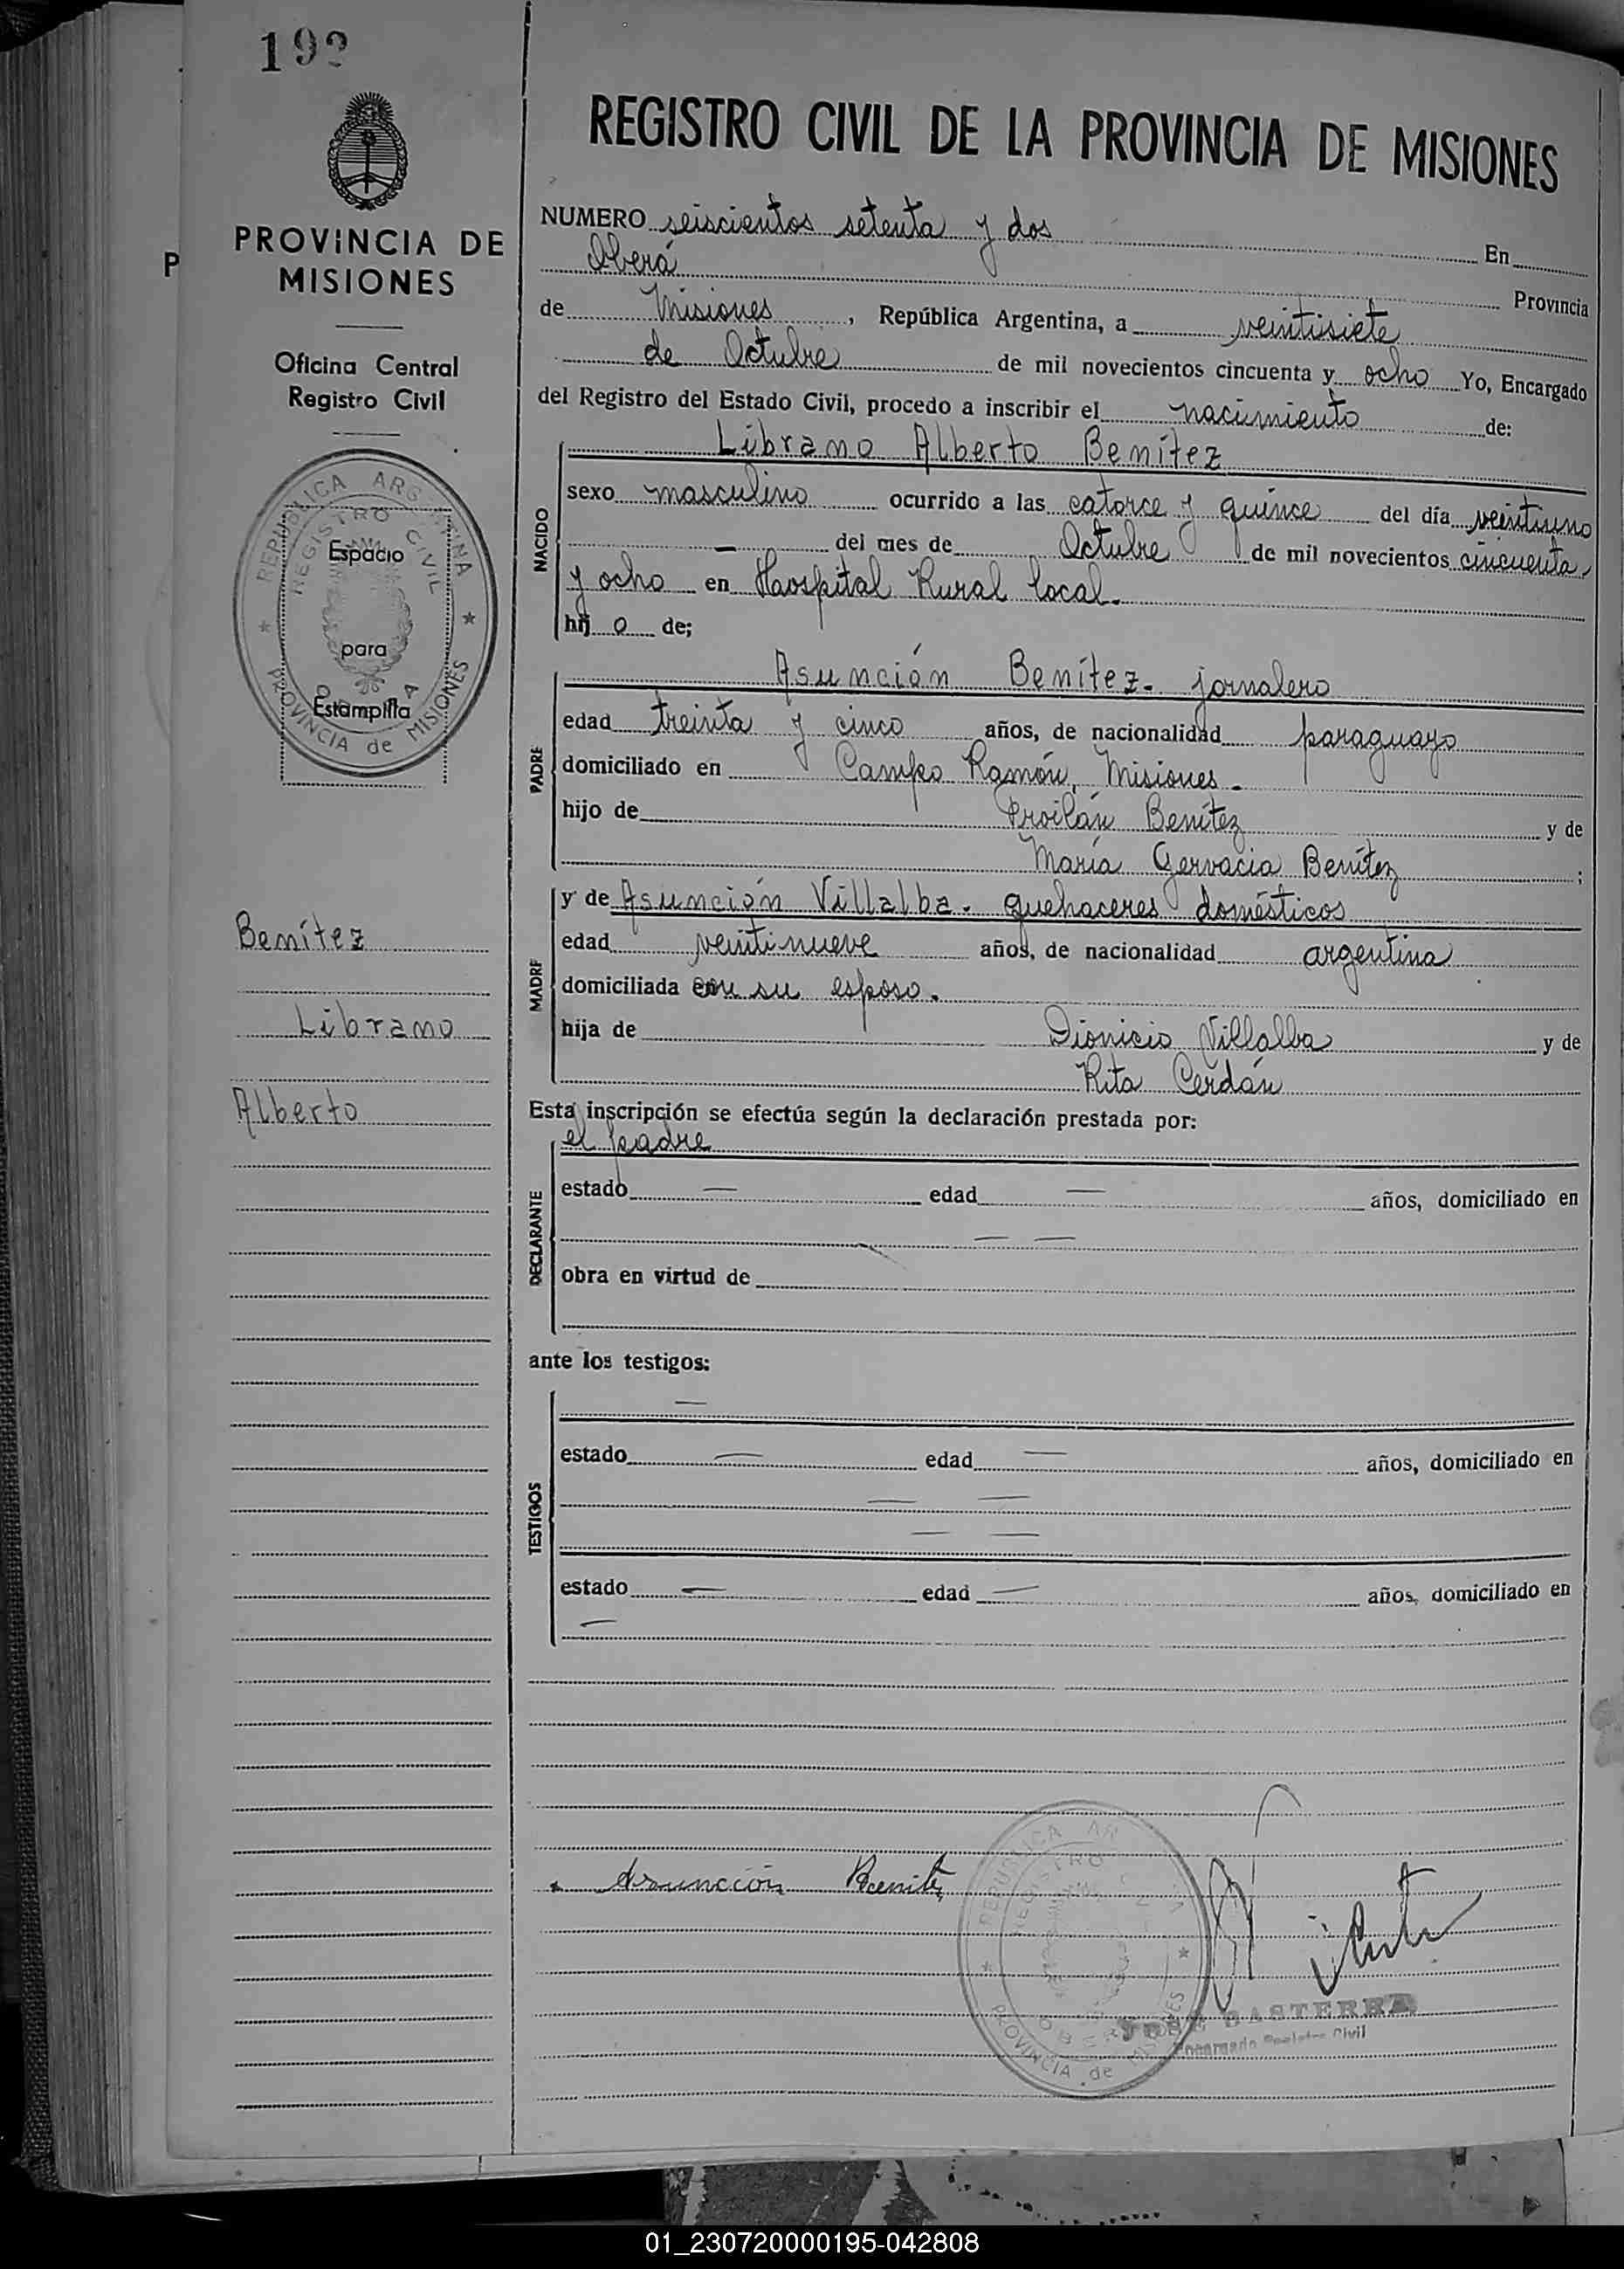 192
PROVINCIA DE
MISIONES
Oficina Central
Registro Civil
REPUBLICA ARGENTINA
REGISTRO CIVIL
Espacio
para
Estampilla
PROVINCIA de MISIONES
Benítez
Librano
Alberto
P
REGISTRO CIVIL DE LA PROVINCIA DE MISIONES
NUMERO seiscientos setenta y dos En
Oberá Provincia
de Misiones, República Argentina, a veintisiete
de Octubre de mil novecientos cincuenta y ocho Yo, Encargado
del Registro del Estado Civil, procedo a inscribir el nacimiento de:
NACIDO
Librano Alberto Benítez
sexo masculino ocurrido a las catorce y quince del día veintiuno
— del mes de Octubre de mil novecientos cincuenta
y ocho en Hospital Rural local.
hij o de;
PADRE
Asunción Benítez - jornalero
edad treinta y cinco años, de nacionalidad paraguayo
domiciliado en Campo Ramón, Misiones.
hijo de Froilán Benítez y de
María Gervacia Benítez ;
MADRE
y de Asunción Villalba - quehaceres domésticos
edad veintinueve años, de nacionalidad argentina
domiciliada con su esposo.
hija de Dionicio Villalba y de
Rita Cerdán
Esta inscripción se efectúa según la declaración prestada por:
DECLARANTE
el padre
estado — edad — años, domiciliado en
— —
obra en virtud de
ante los testigos:
TESTIGOS
—
estado — edad — años, domiciliado en
— —
— —
estado — edad — años, domiciliado en
—
Asunción Benitez
REPUBLICA AR
REGISTRO
PROVINCIA de MISIONES
JOSE BASTERRA
Encargado Registro Civil
01_230720000195-042808